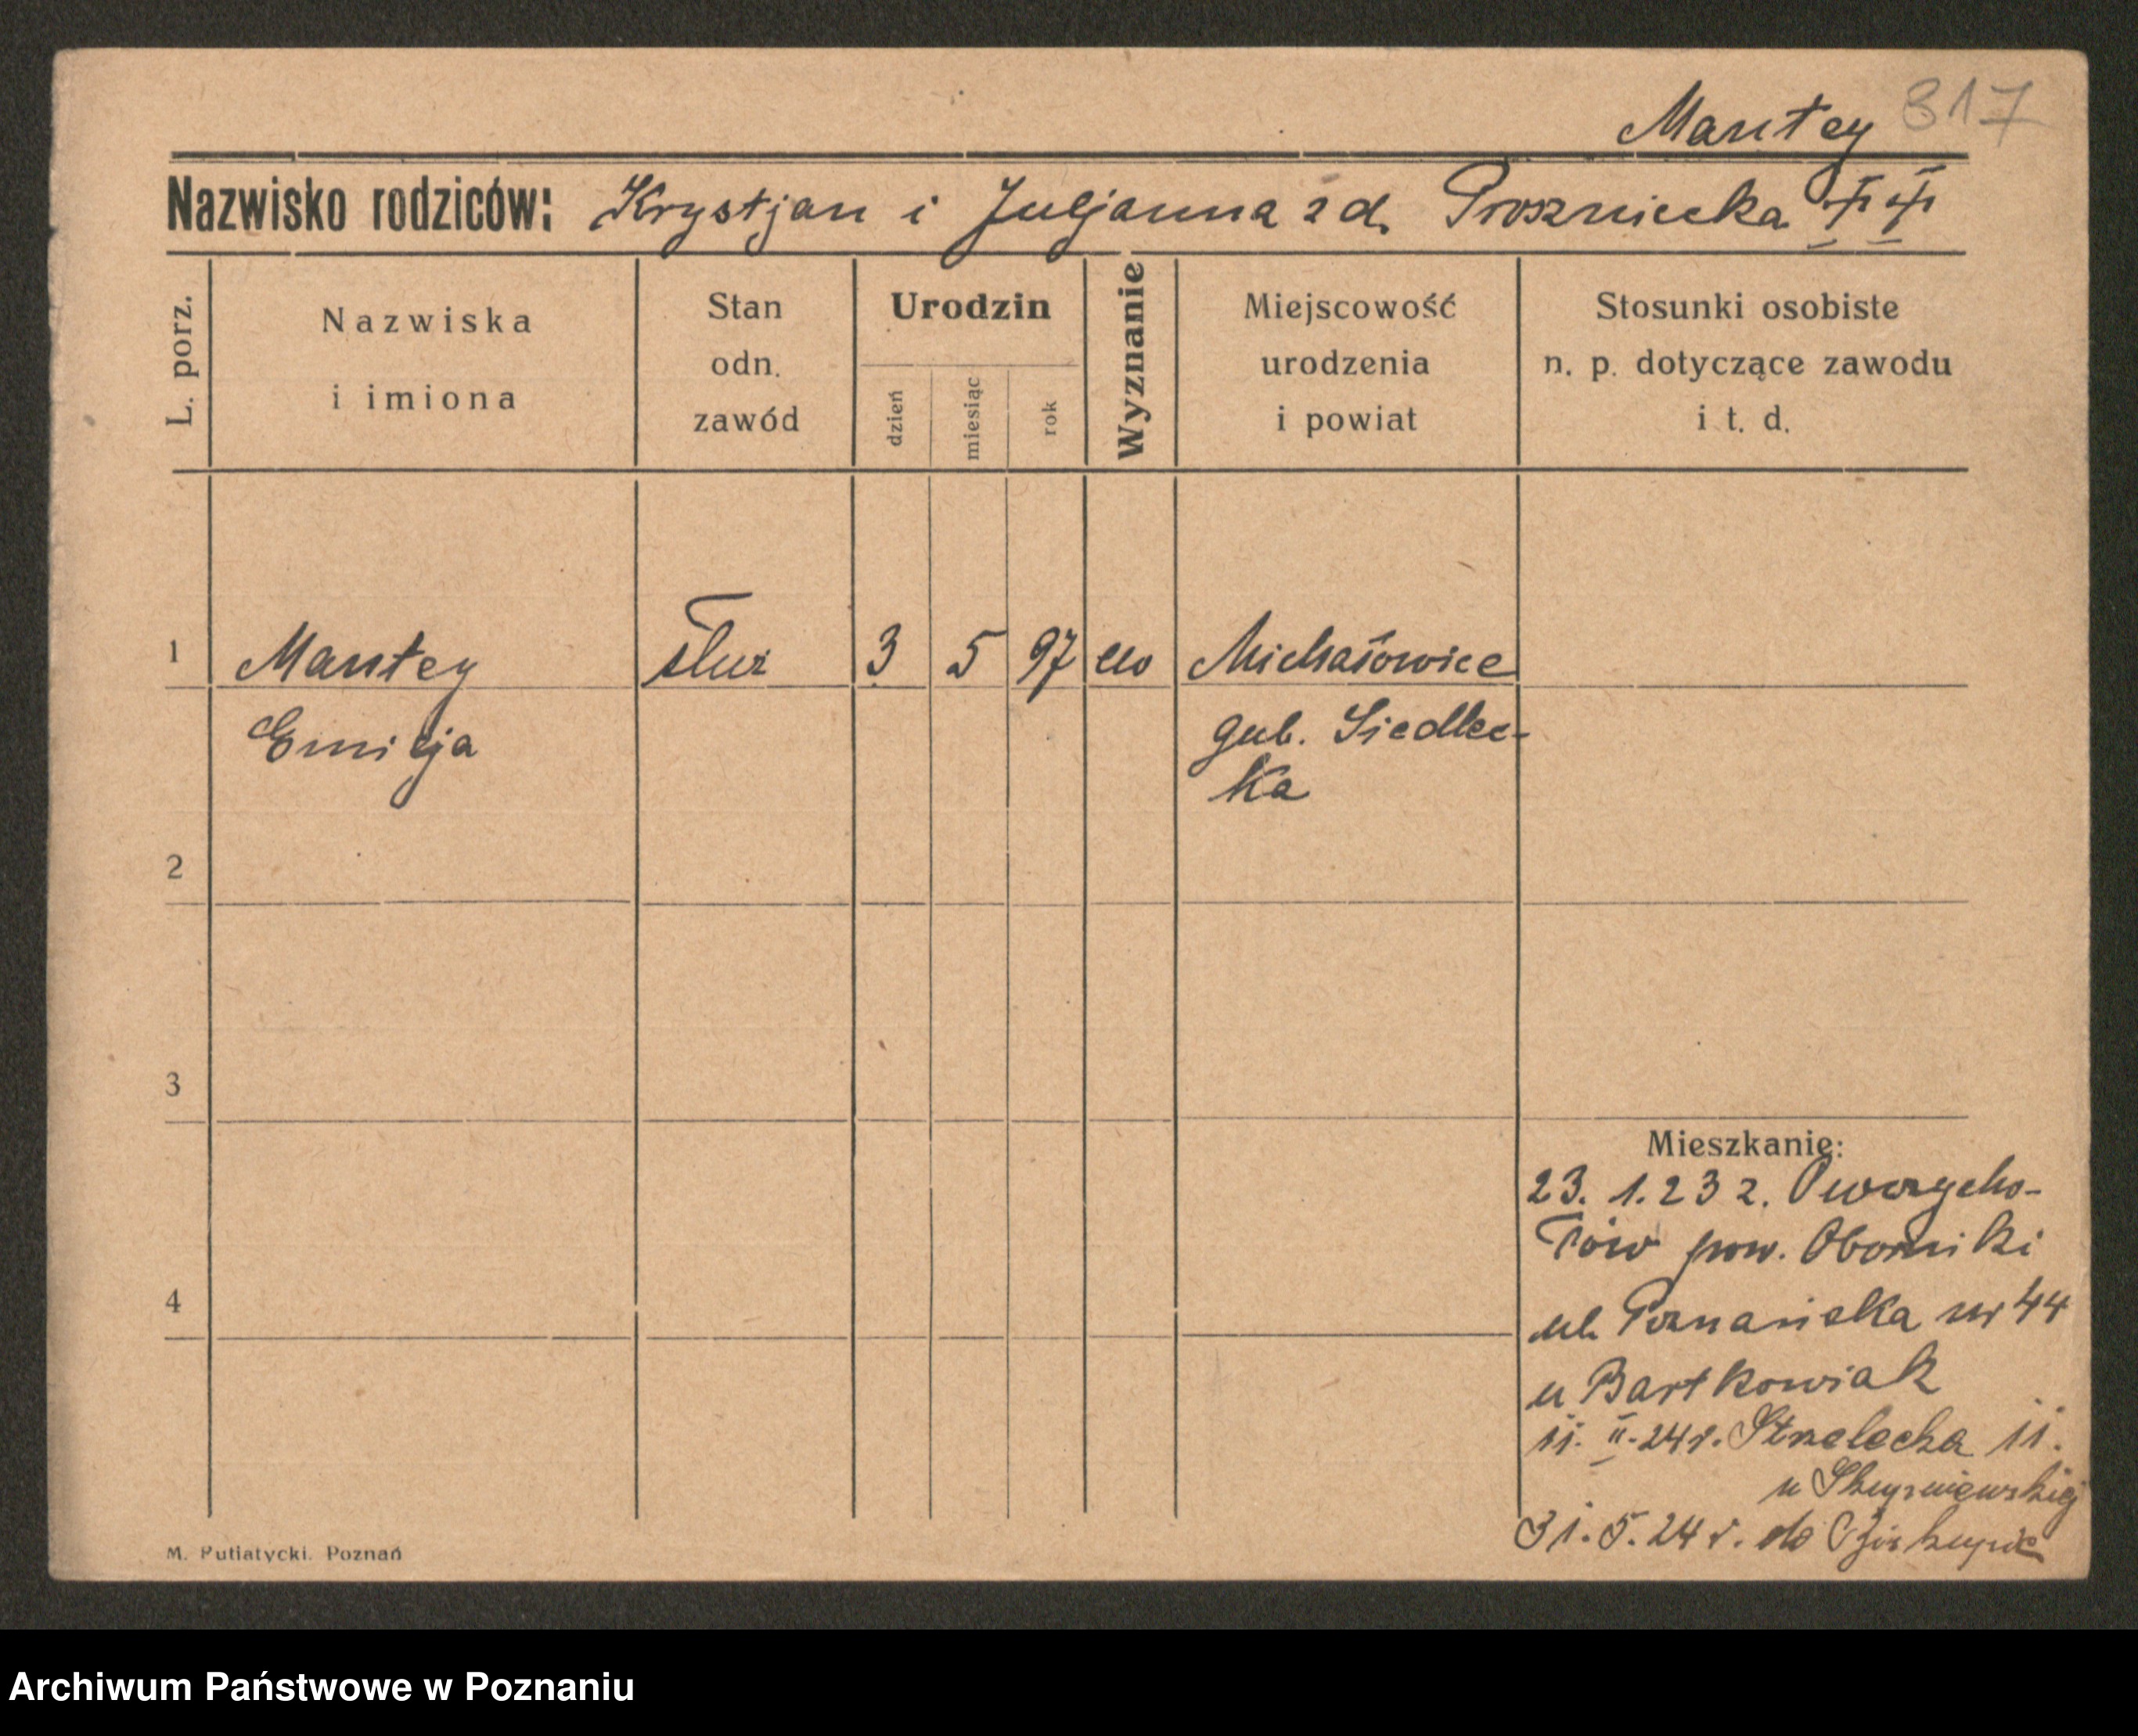 Mantey 817
Nazwisko rodziców: Krystjan i Juljanna z d. Proszniecka ++
L. porz.
Nazwiska i imiona
Stan odn. zawód
Urodzin
dzień miesiąc rok
Wyznanie
Miejscowość urodzenia i powiat
Stosunki osobiste n. p. dotyczące zawodu i t. d.
1 Mantey służ 3 5 97 Michałowice
Emilja gub. Siedlec-
ka
2
3
4
Mieszkanie:
23. 1. 23 z.
pow. Oborniki
ul. Poznańska nr 44
u Bartkowiak
11. II. 24 r. Strzelecka 11.
u
31. 5. 24 r. do
M. Putiatycki. Poznań
Archiwum Państwowe w Poznaniu